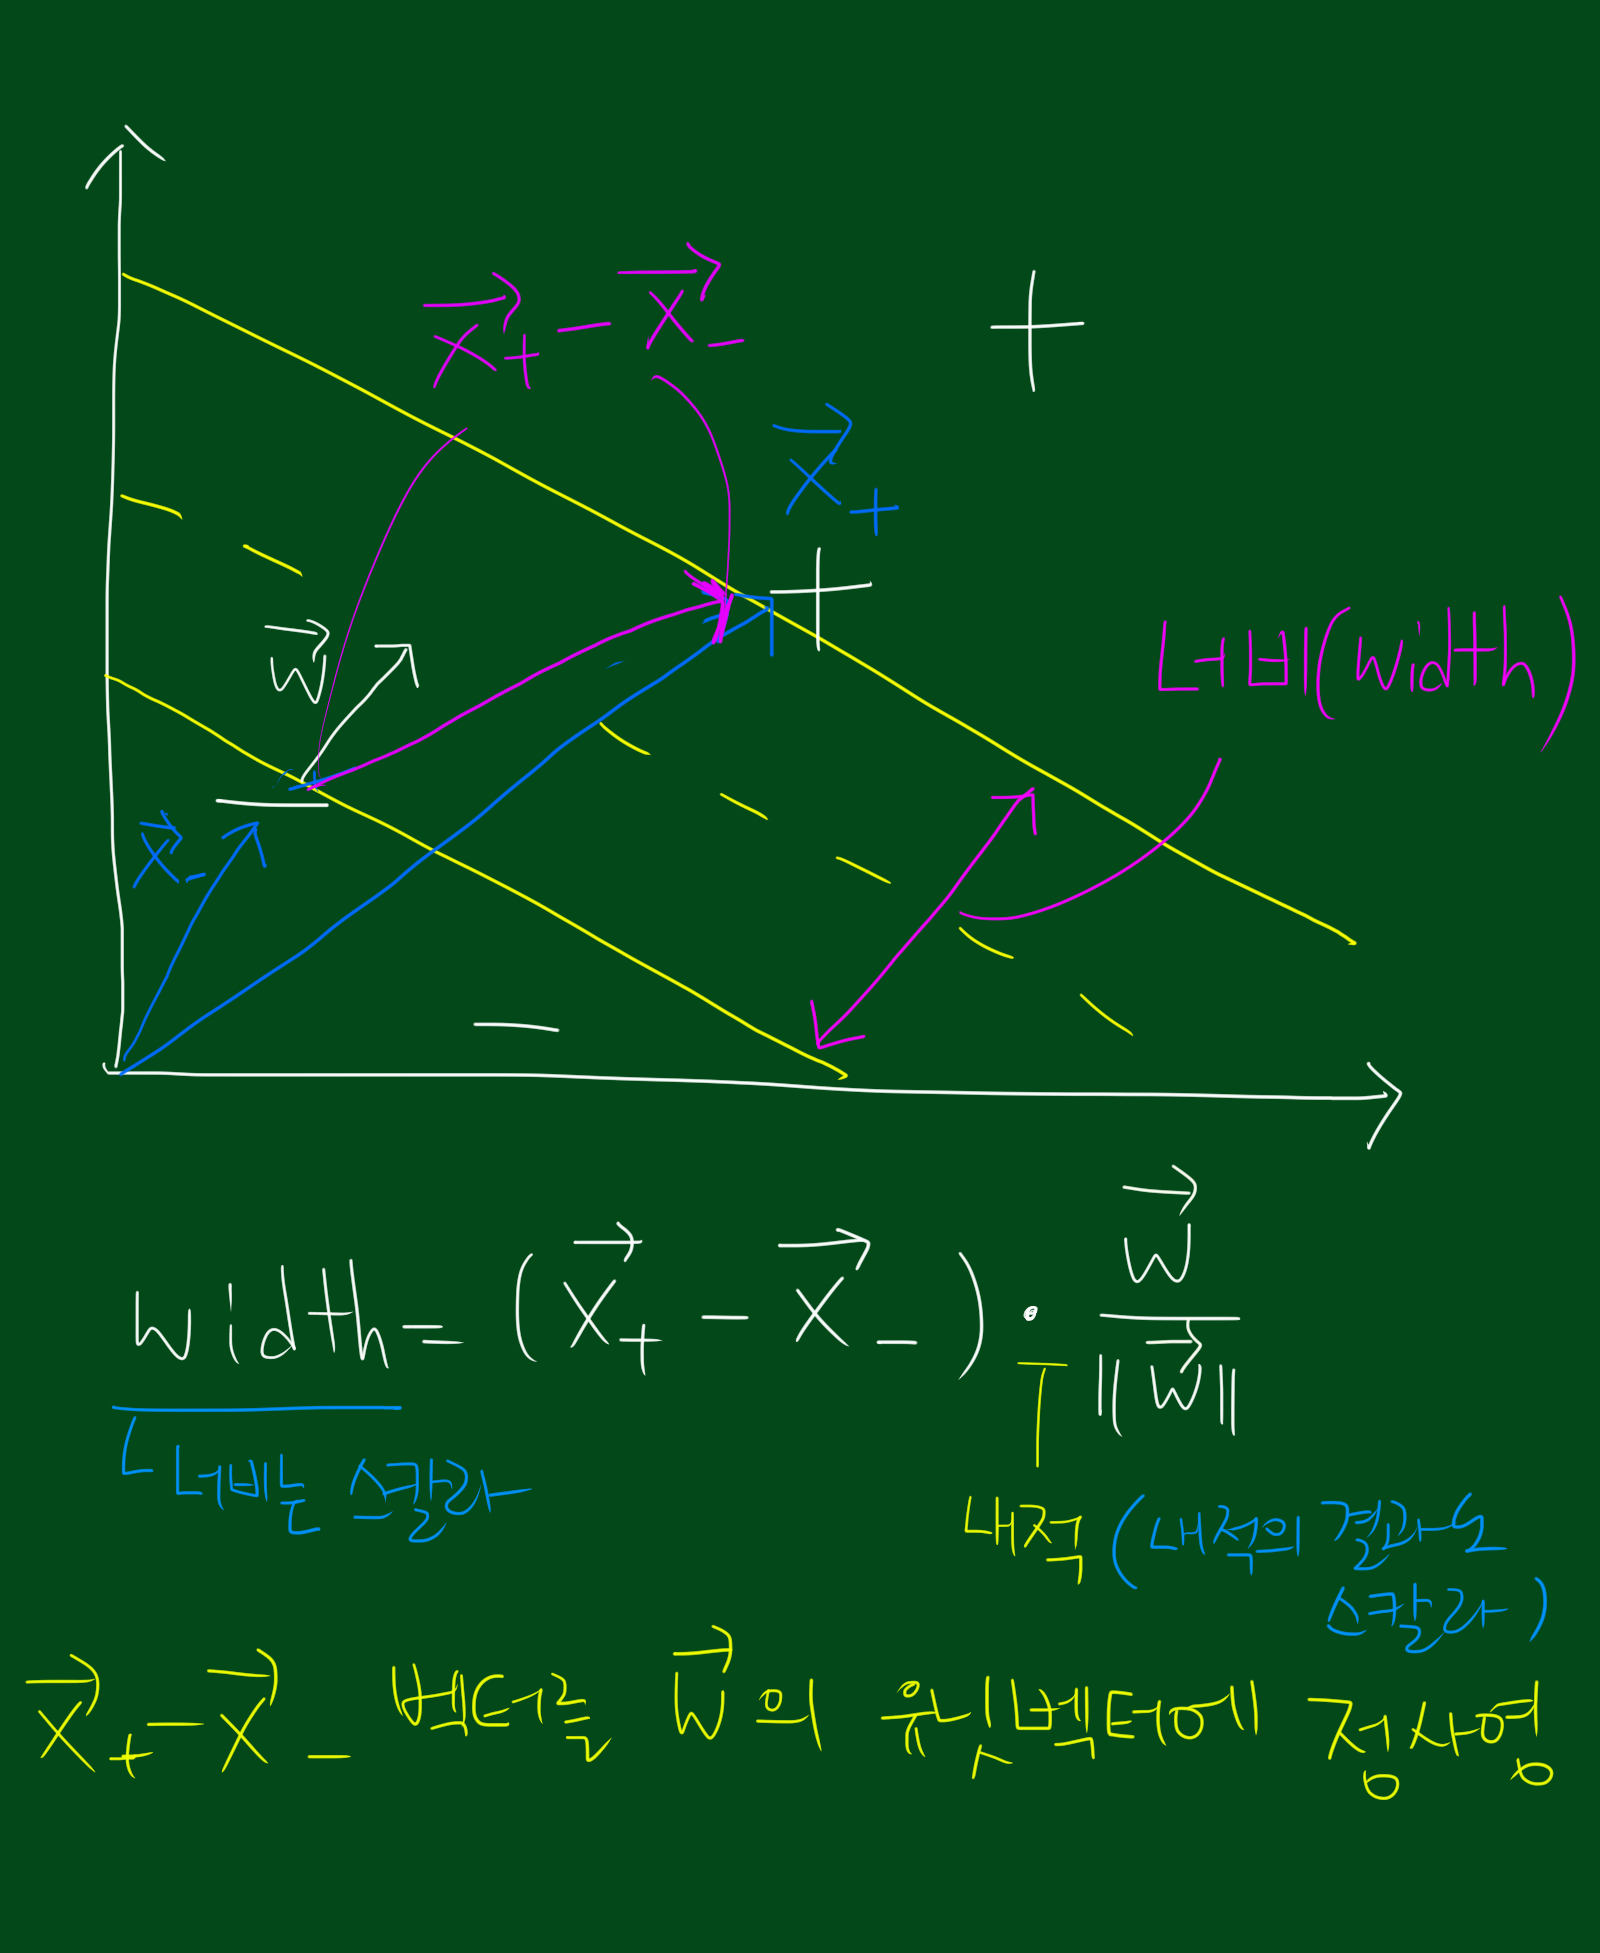 x⃗₊ − x⃗₋
+
x⃗₊
+
너비(width)
w⃗
−
x⃗₋
−
width = (x⃗₊ − x⃗₋) · w⃗ / ||w⃗||
너비는 스칼라
내적 (내적의 결과도
스칼라)
x⃗₊ − x⃗₋ 벡터를 w⃗의 유닛벡터에 정사영